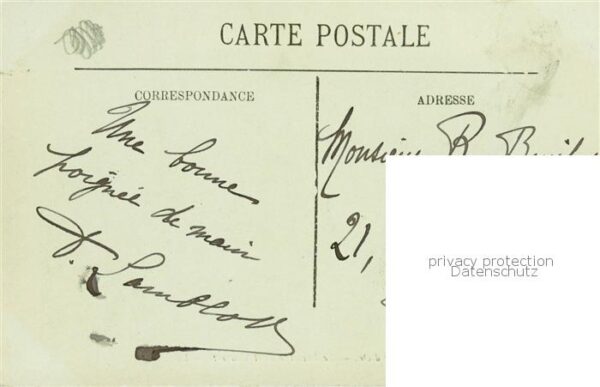 CARTE POSTALE
CORRESPONDANCE
Une bonne
poignée de main
ADRESSE
Monsieur R.
21,
privacy protection
Datenschutz